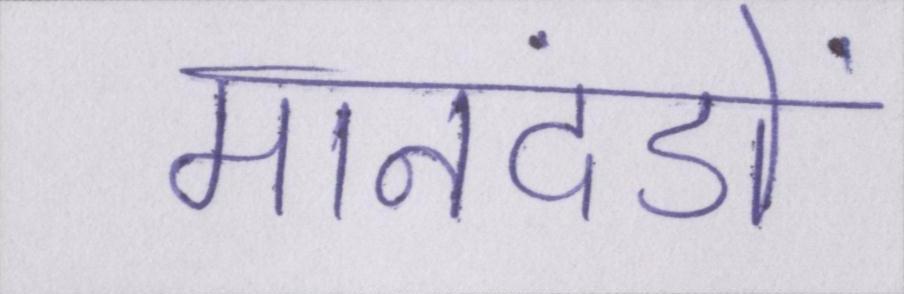 मानदंडों